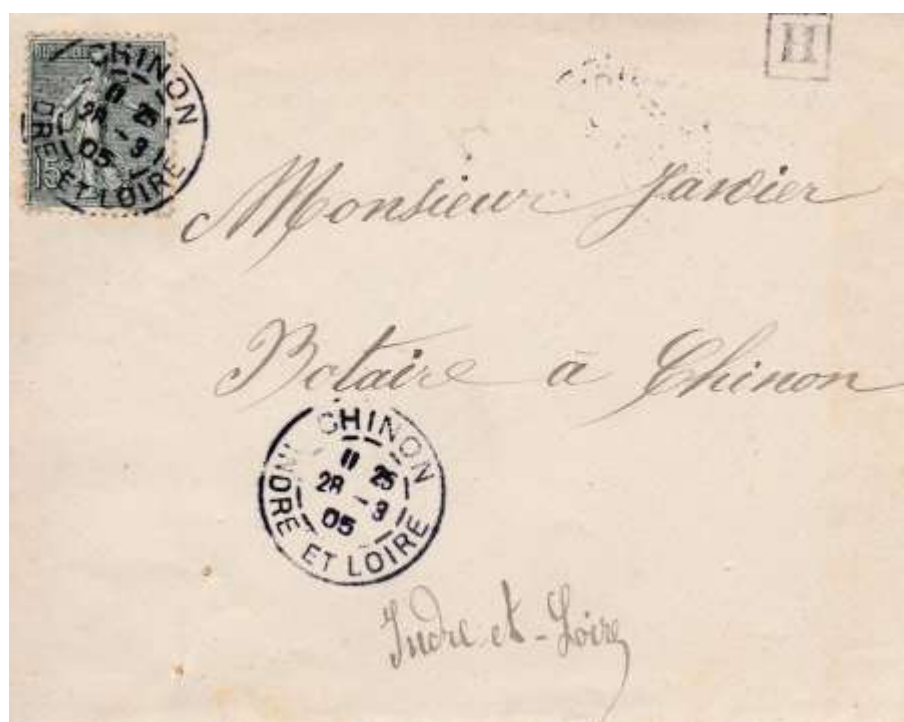 CHINON
11 25
28 - 3
05
INDRE ET LOIRE
15c
H
Monsieur Janvier
Notaire à Chinon
CHINON
11 25
28 - 3
05
INDRE ET LOIRE
Indre et-Loire